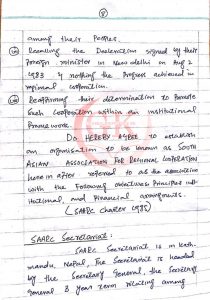 8
among their Peoples.
Recalling the Declaration signed by their
Foreign Minister in New delhi on Aug 2
1983 & nothing the Progress achieved in
regional cooperation.
Reaffirming their determination to Promote
such cooperation within an institutional
Framework.
DO HEREBY AGREE to establish
an organisation to be known as SOUTH
ASIAN ASSOCIATION FOR REGIONAL COOPERATION
here in after referred to as the association
with the Following objectives Principles inst-
itutional, and Financial arrangements.
(SAARC Charter 1985)
SAARC Secretariat:
SAARC Secretariat is in Kath-
mandu Nepal, The Secretariat is headed
by the Secretary General, the Secretary
General 3 year term rotating among